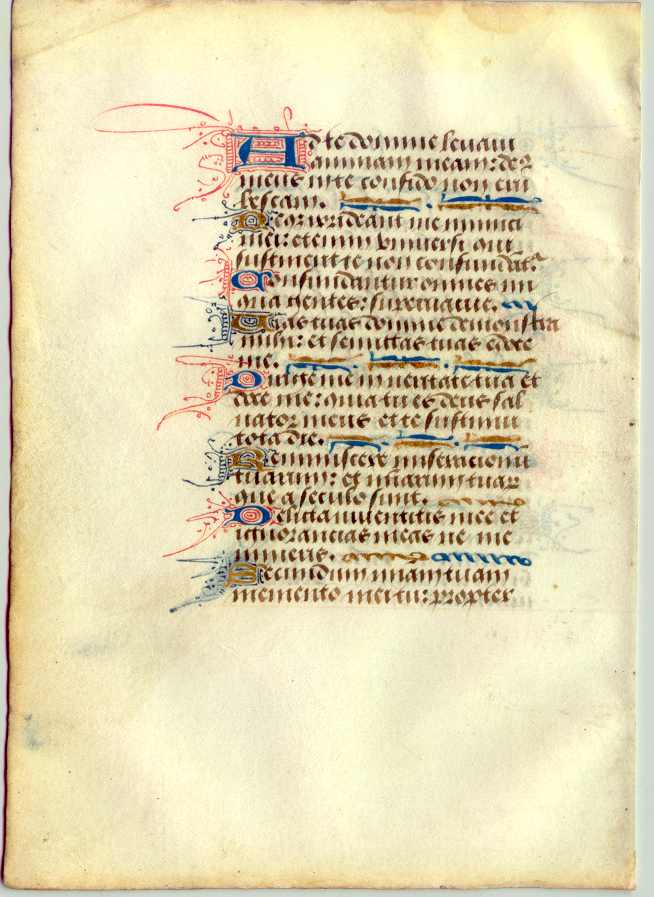 Ad te domine levavi
animam meam: de9
meus in te confido non eru
bescam.
Neqz irrideant me inimici
mei: etenim universi qui
sustinent te non confundāt2
Confundantur omnes ini
qua gentes: supervacue.
Vias tuas domine demonstra
mihi: et semittas tuas edoce
me.
Dirige me in veritate tua et
doce me: quia tu es deus sal
vator meus et te sustinui
tota die.
Reminiscere miseracionū
tuarum: et miarum tuar
que a seculo sunt.
Delicta iuventutis mee et
ignorancias meas ne me
mineris.
Secundum miam tuam
memento mei tu: propter